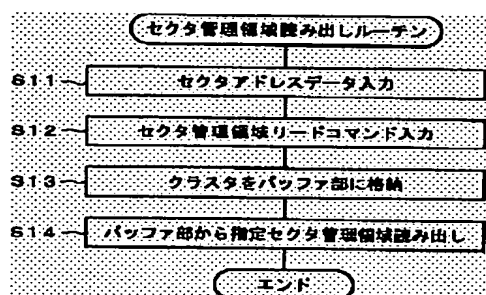 セクタ管理領域読み出しルーチン
S11 セクタアドレスデータ入力
S12 セクタ管理領域リードコマンド入力
S13 クラスタをバッファ部に格納
S14 バッファ部から指定セクタ管理領域読み出し
エンド